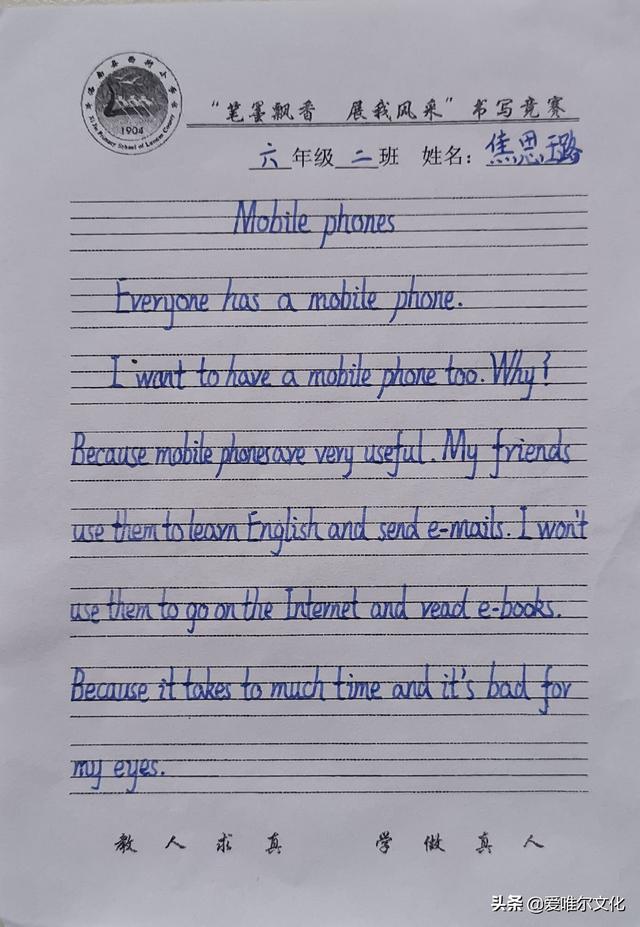 洛南县西街小学
1904
Xi Jie Primary School of Luonan County
“笔墨飘香 展我风采”书写竞赛
六年级 二班 姓名：焦思璐
Mobile phones
Everyone has a mobile phone.
I want to have a mobile phone too. Why?
Because mobile phones are very useful. My friends
use them to learn English and send e-mails. I won't
use them to go on the Internet and read e-books.
Because it takes to much time and it's bad for
my eyes.
教人求真 学做真人
头条 @爱唯尔文化